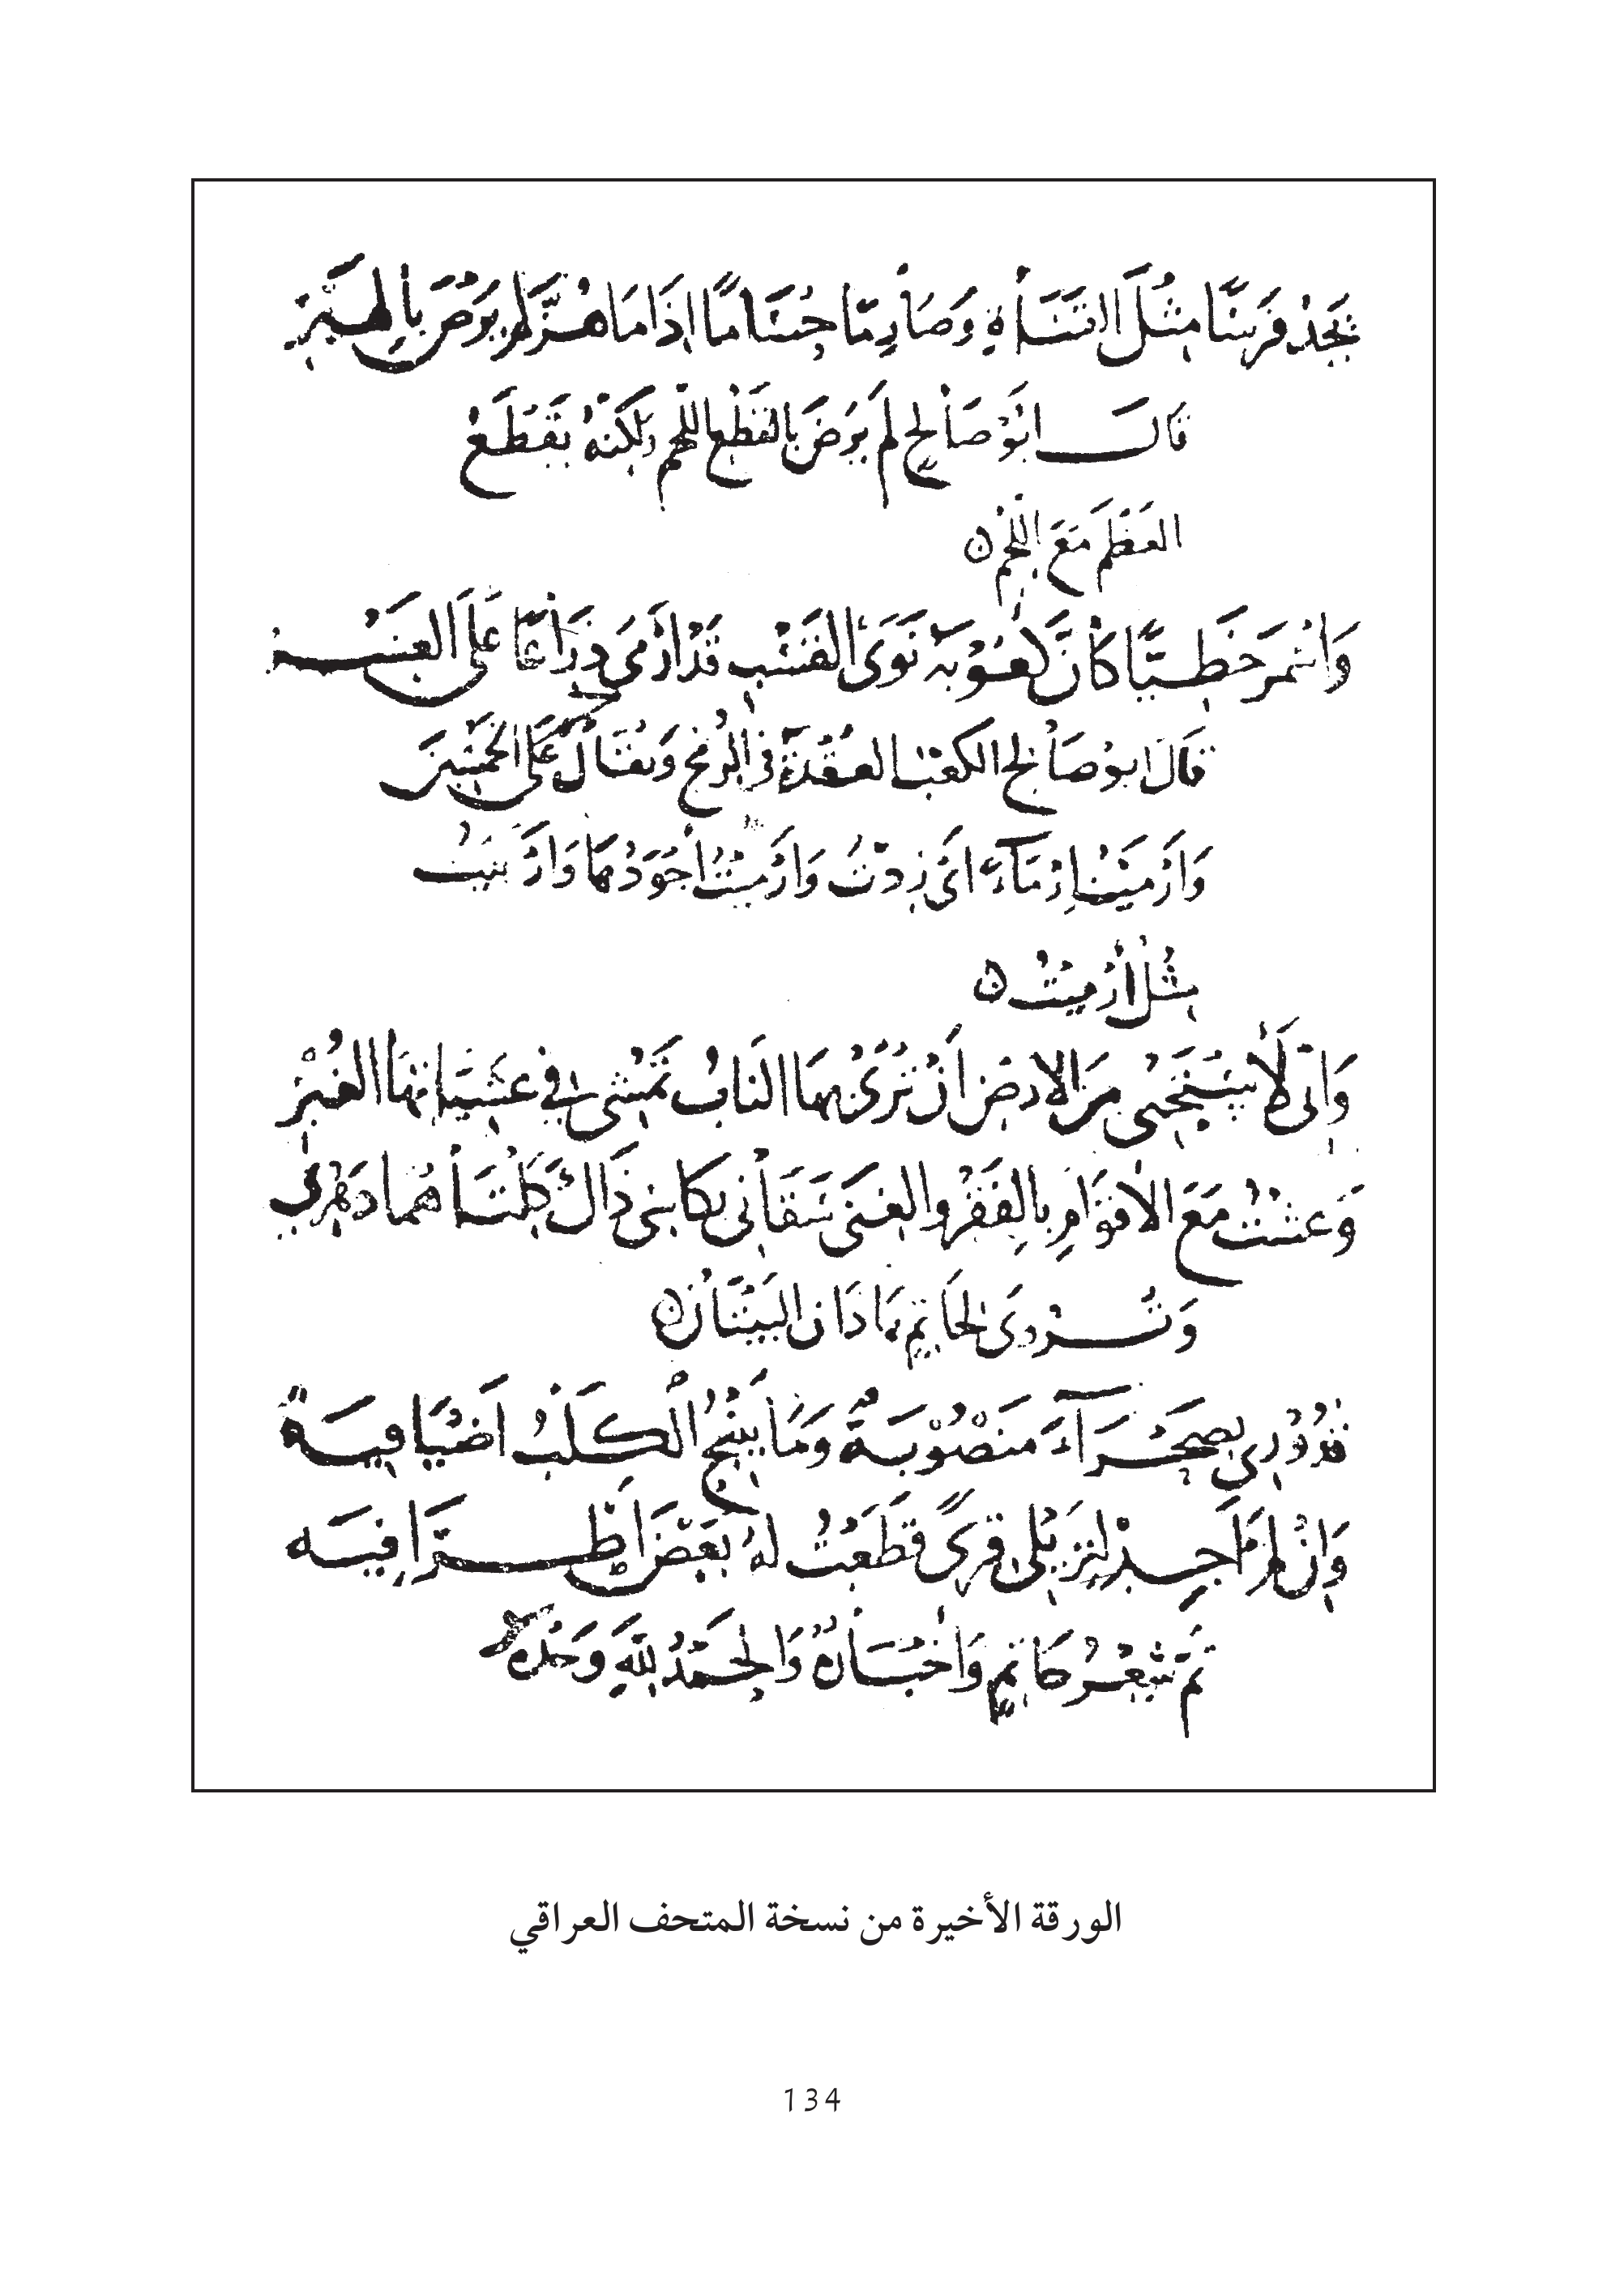 يَجِدْ فَرَسًا مِثْلَ القَنَاةِ وَصَارِمًا حُسَامًا اِذَا مَا هُزَّ لَمْ يَرْضَ بِالهَبْرِ
قَالَ ابُوْ صَالِحٍ لَمْ يَرْضَ بِالقَطْعِ اللَّحْمِ وَلَكِنَّهُ يَقْطَعُ
العَظْمَ مَعَ اللَّحْمِ ه
وَاَسْمَرَ خَطِّيًّا كَأَنَّ كُعُوْبَهُ نَوَى القَسْبِ قَدْ اَرْمَى ذِرَاعًا عَلَى العَشْرِ
قَالَ ابوُ صَالِحٍ الكَعْبُ العُقْدَةُ في الرُمْحِ وَيُقَالُ عَلَى الخَمْسِيْنَ
وَاَرْمَيْتُ اِرْمَآءً اَىْ زِدْتُ وَاَرْمَيْتُ اَجْوَدُهَا وَاَرْبَيْتُ
مِثْلُ اَرْمَيْتُ ه
وَاِنّى لَأَسْتَحْيِى مِنَ الاَرْضِ اَنْ تَرَىْ بِهَا النَابُ تَمْشِى فِي عَشِيَّاتِهَا الغُبْرِ
وَعِشْتُ مَعَ الاَقْوَامِ بِالفَقْرِ والغِنَى سَقَانِى بِكَاسَىْ ذَاكَ كِلْتَاهُمَا دَهْرِى
وَتُرْوَى لِحَاتِمٍ هَذَانِ البَيْتَانِ ه
قُدُوْرِى بِصَحْرَآءَ مَنْصُوْبَةٌ وَمَا يَنْبَحُ الْكَلْبُ اَضْيَافِيَهْ
وَاِنْ لَمْ اَجِدْ لِنَزِيْلِى قِرىً قَطَعْتُ لَهُ بَعْضَ اَطْرَافِيَه
تَمَّ شِعْرُ حَاتِمٍ وَاَخْبَارُهُ وَالحَمْدُ لِلّهِ وَحْدَهُ
الورقة الأخيرة من نسخة المتحف العراقي
134